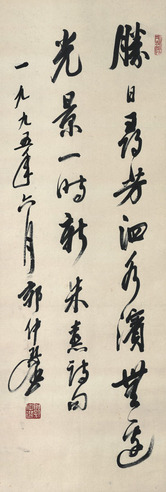 勝日尋芳泗水濱無邊
光景一時新朱熹詩句
一九九五年六月郭仲